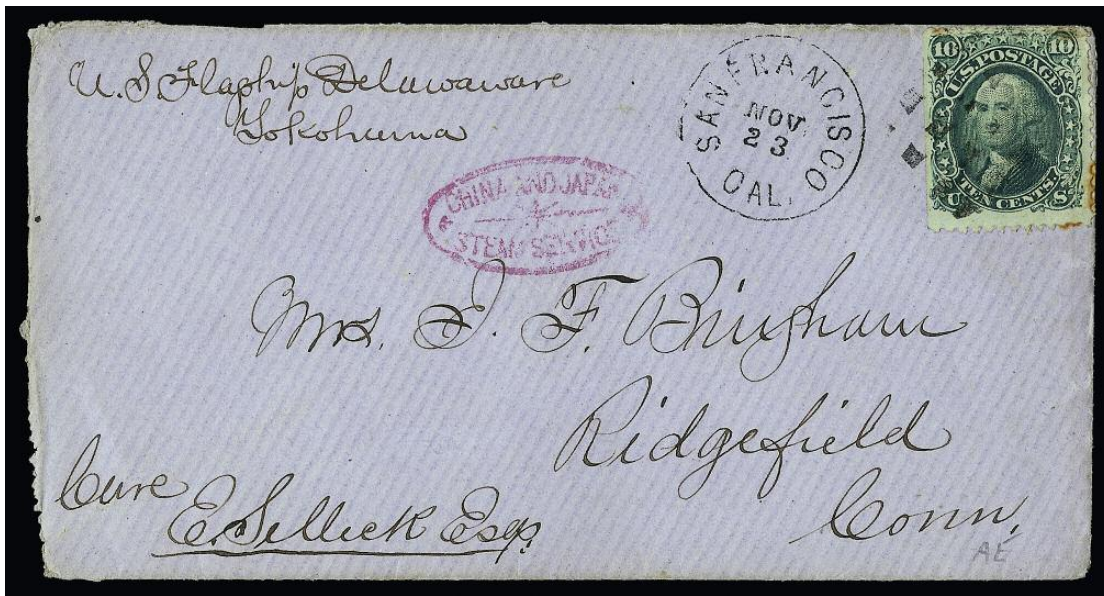 U.S. Flagship Delawaware
Yokohama
SAN FRANCISCO
NOV.
23
CAL.
10 10
U.S. POSTAGE
TEN CENTS.
U S
CHINA AND JAPAN
STEAM SERVICE
Mrs. J. F. Bingham
Ridgefield
Conn.
Care
E. Selleck Esq.
AE